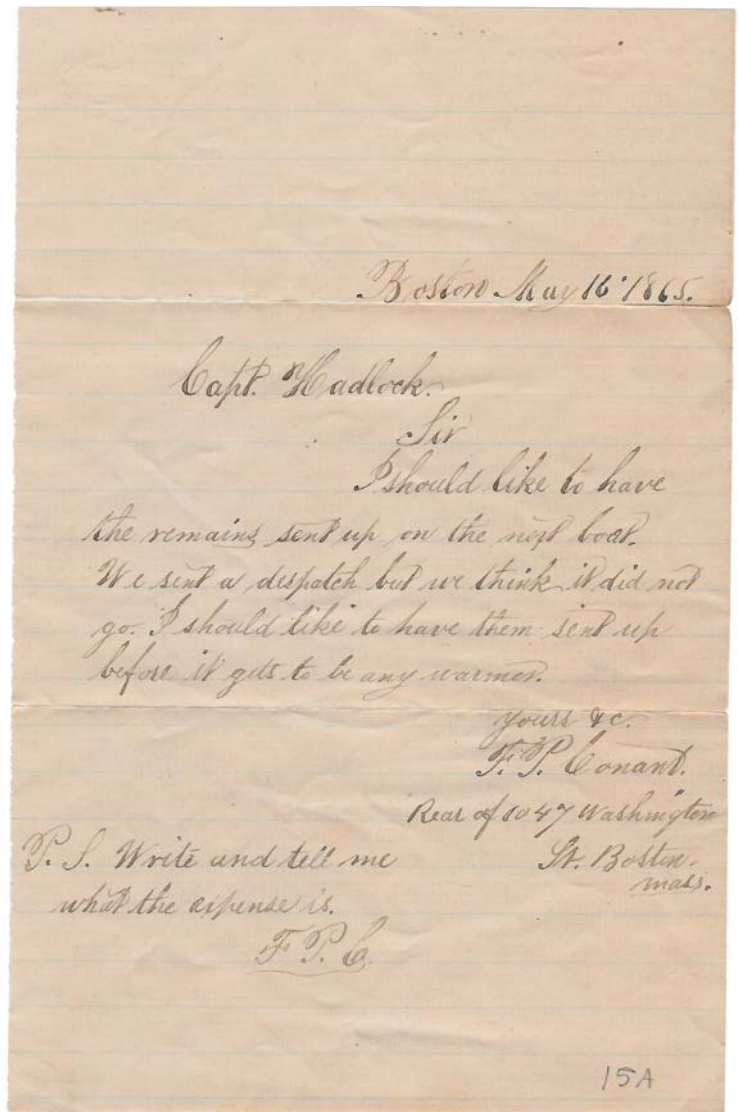 Boston May 16 1865.
Capt. Hadlock.
Sir
I should like to have
the remains sent up on the next boat.
We sent a despatch but we think it did not
go. I should like to have them sent up
before it gets to be any warmer.
Yours &c.
F. P. Conant.
Rear of 1047 Washington
St. Boston.
Mass.
P. S. Write and tell me
what the expense is.
F P. C.
15A